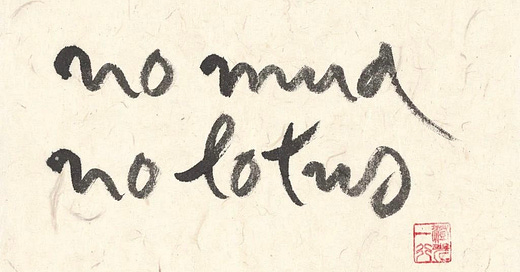 no mud
no lotus